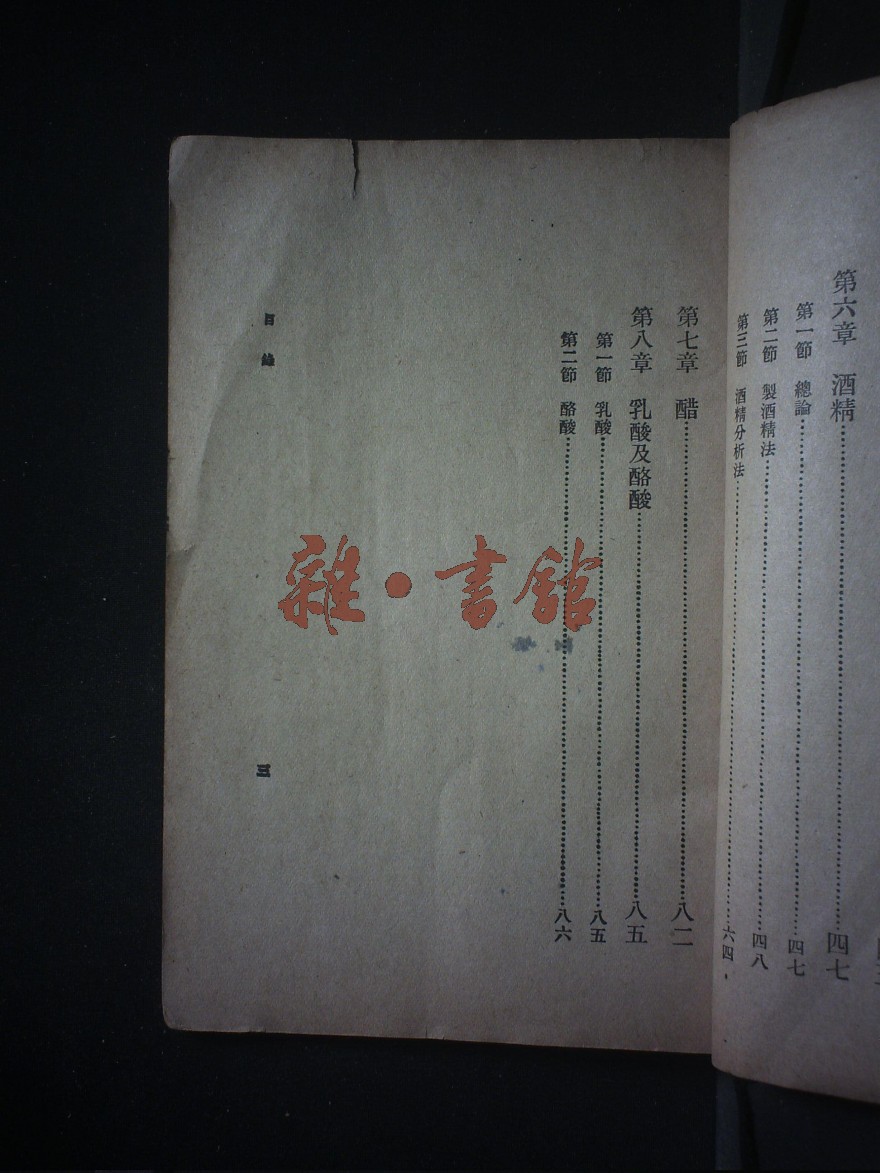 第六章　酒精……………………四七
第一節　總論……………………四七
第二節　製酒精法……………………四八
第三節　酒精分析法……………………六四
第七章　醋……………………八二
第八章　乳酸及酪酸……………………八五
第一節　乳酸……………………八五
第二節　酪酸……………………八六
目錄
三
雜·書館